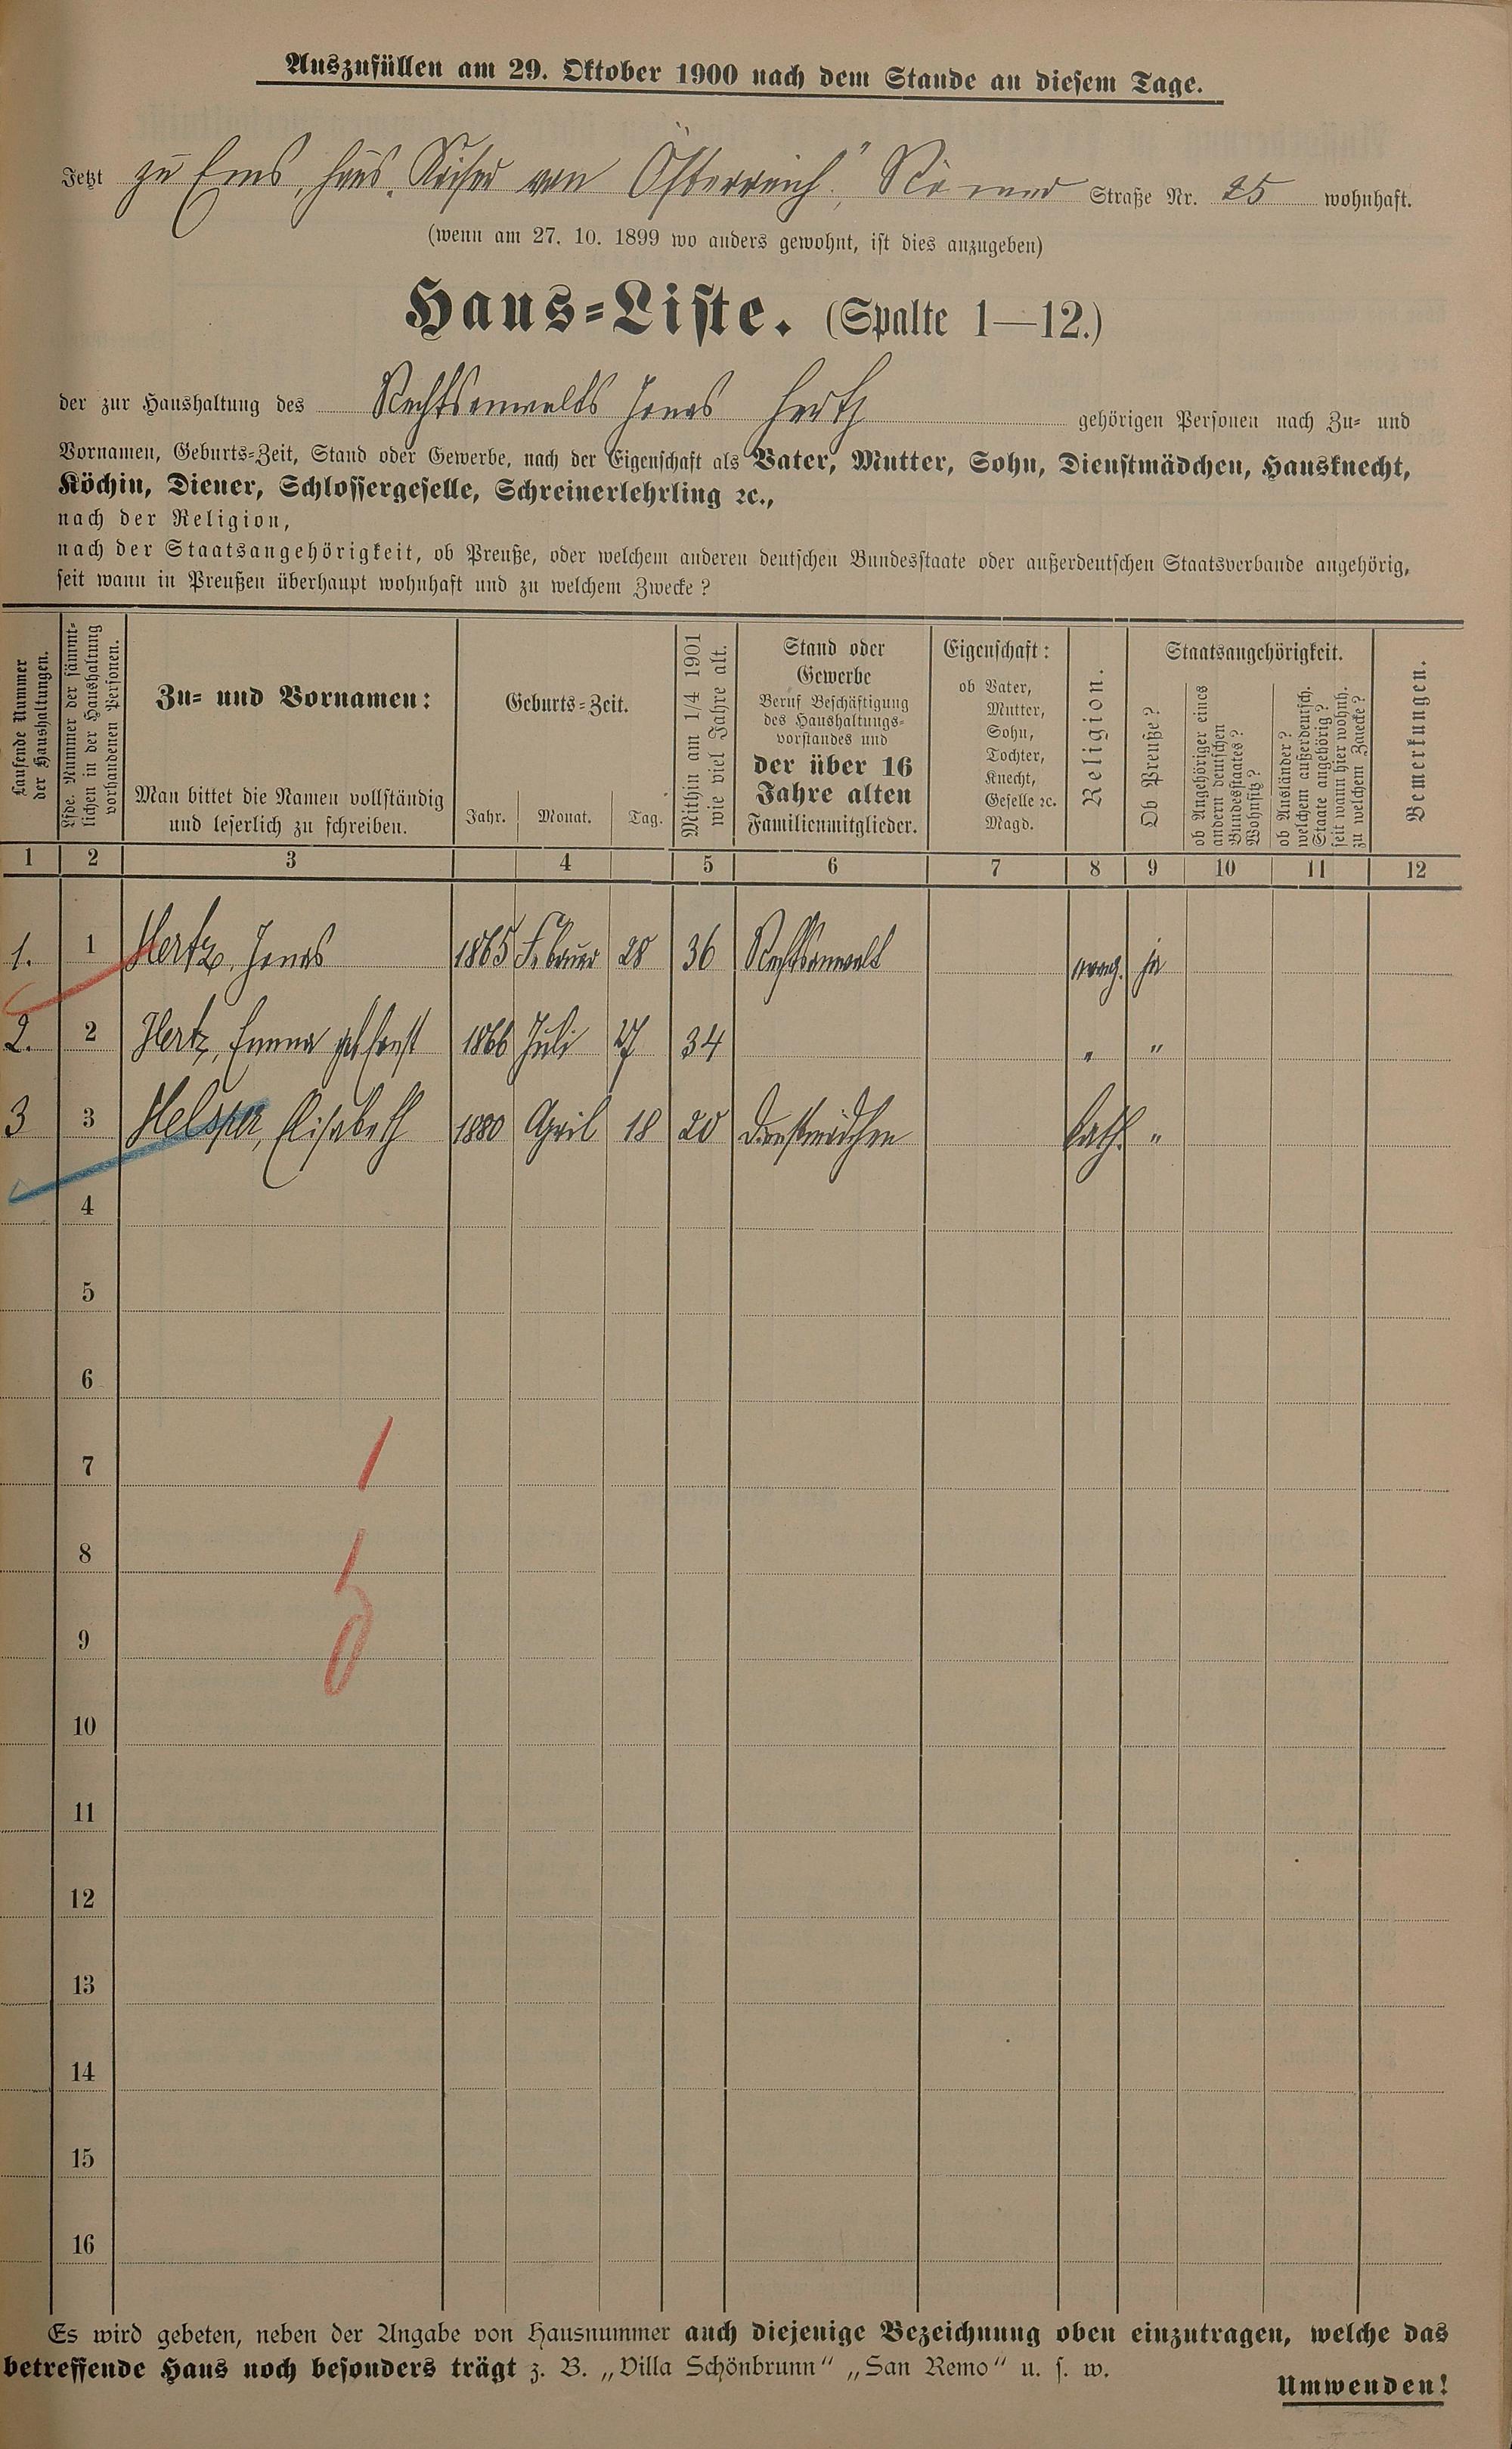 Auszufüllen am 29. Oktober 1900 nach dem Stande an diesem Tage.
Jetzt zu Ems, Haus „Kaiser von Österreich", Römer Straße Nr. 25 wohnhaft.
(wenn am 27. 10. 1899 wo anders gewohnt, ist dies anzugeben)
Haus-Liste. (Spalte 1—12.)
der zur Haushaltung des Rechtsanwalts Jonas Hertz gehörigen Personen nach Zu- und
Vornamen, Geburts-Zeit, Stand oder Gewerbe, nach der Eigenschaft als Vater, Mutter, Sohn, Dienstmädchen, Hausknecht,
Köchin, Diener, Schlossergeselle, Schreinerlehrling ꝛc.,
nach der Religion,
nach der Staatsangehörigkeit, ob Preuße, oder welchem anderen deutschen Bundesstaate oder außerdeutschen Staatsverbande angehörig,
seit wann in Preußen überhaupt wohnhaft und zu welchem Zwecke?
Laufende Nummer
der Haushaltungen.
Lfde. Nummer der sämmt-
lichen in der Haushaltung
vorhandenen Personen.
Zu- und Vornamen:
Man bittet die Namen vollständig
und leserlich zu schreiben.
Geburts-Zeit.
Jahr. Monat. Tag.
Mithin am 1/4 1901
wie viel Jahre alt.
Stand oder
Gewerbe
Beruf Beschäftigung
des Haushaltungs-
vorstandes und
der über 16
Jahre alten
Familienmitglieder.
Eigenschaft:
ob Vater,
Mutter,
Sohn,
Tochter,
Knecht,
Geselle ꝛc.
Magd.
Religion.
Staatsangehörigkeit.
Ob Preuße?
ob Angehöriger eines
andern deutschen
Bundesstaates?
Wohnsitz?
ob Ausländer?
welchem außerdeutsch.
Staate angehörig?
seit wann hier wohnh.
zu welchem Zwecke?
Bemerkungen.
1 2 3 4 5 6 7 8 9 10 11 12
1. 1 Hertz, Jonas 1865 Februar 28 36 Rechtsanwalt evang. ja
2. 2 Hertz, Emma geb 1866 Juli 27 34 " "
3 3 Helsper, Elisabeth 1880 April 18 20 Dienstmädchen kath. "
4
5
6
7
1
8
9
10
11
12
13
14
15
16
Es wird gebeten, neben der Angabe von Hausnummer auch diejenige Bezeichnung oben einzutragen, welche das
betreffende Haus noch besonders trägt z. B. „Villa Schönbrunn" „San Remo" u. s. w.
Umwenden!